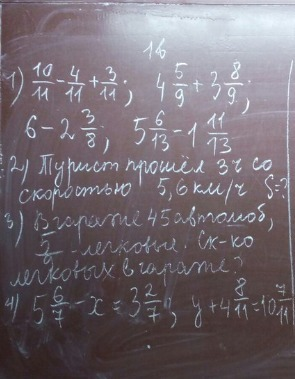 1 в
1) 10/11 - 4/11 + 3/11; 4 5/9 + 3 8/9;
6 - 2 3/8; 5 6/13 - 1 11/13
2) Турист прошёл 3 ч со
скоростью 5,6 км/ч S=?
3) В гараже 45 автомоб,
легковые. Ск-ко
легковых в гараже?
4) 5 6/7 - x = 3 2/7; y + 4 8/11 = 10 7/11